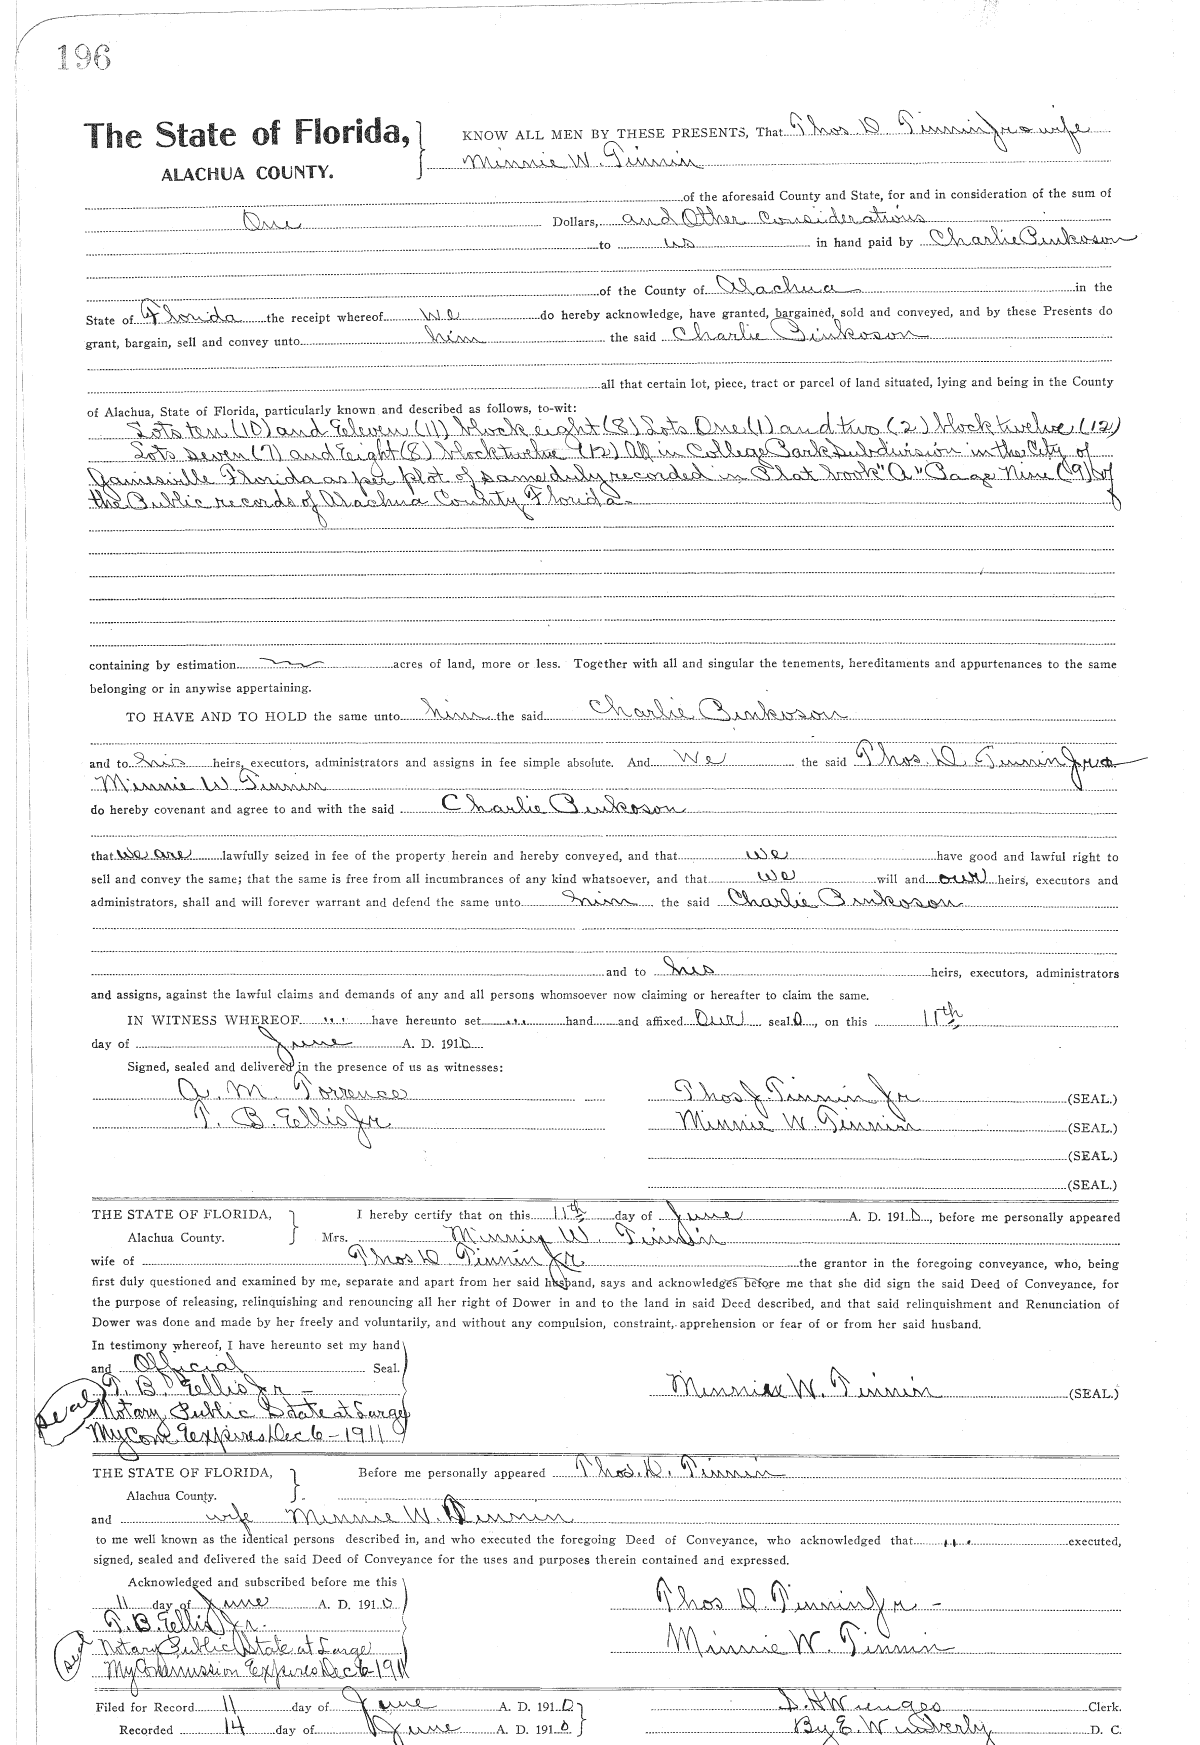 196
The State of Florida,
ALACHUA COUNTY.
KNOW ALL MEN BY THESE PRESENTS, That Thos D. Tinnin Jr & wife
Minnie W. Tinnin
of the aforesaid County and State, for and in consideration of the sum of
One Dollars, and Other Considerations
to us in hand paid by Charlie Pinkoson
of the County of Alachua in the
State of Florida the receipt whereof we do hereby acknowledge, have granted, bargained, sold and conveyed, and by these Presents do
grant, bargain, sell and convey unto him the said Charlie Pinkoson
all that certain lot, piece, tract or parcel of land situated, lying and being in the County
of Alachua, State of Florida, particularly known and described as follows, to-wit:
Lots ten (10) and Eleven (11) block eight (8) Lots One (1) and two (2) block twelve (12)
Lots Seven (7) and Eight (8) block twelve (12) All in College Park Subdivision in the City of
Gainesville Florida as per plot of same duly recorded in Plat book "A" Page Nine (9) of
the Public records of Alachua County Florida
containing by estimation acres of land, more or less. Together with all and singular the tenements, hereditaments and appurtenances to the same
belonging or in anywise appertaining.
TO HAVE AND TO HOLD the same unto him the said Charlie Pinkoson
and to his heirs, executors, administrators and assigns in fee simple absolute. And We the said Thos. D. Tinnin Jr &
Minnie W. Tinnin
do hereby covenant and agree to and with the said Charlie Pinkoson
that we are lawfully seized in fee of the property herein and hereby conveyed, and that we have good and lawful right to
sell and convey the same; that the same is free from all incumbrances of any kind whatsoever, and that we will and our heirs, executors and
administrators, shall and will forever warrant and defend the same unto him the said Charlie Pinkoson
and to his heirs, executors, administrators
and assigns, against the lawful claims and demands of any and all persons whomsoever now claiming or hereafter to claim the same.
IN WITNESS WHEREOF " have hereunto set " hand and affixed Our seal s, on this 11th
day of June A. D. 1910
Signed, sealed and delivered in the presence of us as witnesses:
A. M. Torrence
Thos J. Tinnin Jr (SEAL.)
T. B. Ellis Jr
Minnie W. Tinnin (SEAL.)
(SEAL.)
(SEAL.)
THE STATE OF FLORIDA,
Alachua County.
I hereby certify that on this 11th day of June A. D. 1910, before me personally appeared
Mrs. Minnie W. Tinnin
wife of Thos D Tinnin Jr the grantor in the foregoing conveyance, who, being
first duly questioned and examined by me, separate and apart from her said husband, says and acknowledges before me that she did sign the said Deed of Conveyance, for
the purpose of releasing, relinquishing and renouncing all her right of Dower in and to the land in said Deed described, and that said relinquishment and Renunciation of
Dower was done and made by her freely and voluntarily, and without any compulsion, constraint, apprehension or fear of or from her said husband.
In testimony whereof, I have hereunto set my hand
and Official Seal.
T. B. Ellis Jr
Minnie W. Tinnin (SEAL.)
seal
Notary Public State at Large
My Com Expires Dec 6 - 1911
THE STATE OF FLORIDA,
Alachua County.
Before me personally appeared Thos. D. Tinnin
and wife Minnie W. Tinnin
to me well known as the identical persons described in, and who executed the foregoing Deed of Conveyance, who acknowledged that " executed,
signed, sealed and delivered the said Deed of Conveyance for the uses and purposes therein contained and expressed.
Acknowledged and subscribed before me this
11 day of June A. D. 1910
Thos D. Tinnin Jr
T. B. Ellis Jr.
seal
Notary Public State at Large
Minnie W. Tinnin
My Commission Expires Dec 6 1911
Filed for Record 11 day of June A. D. 1910
S. H Wienges Clerk.
Recorded 14 day of June A. D. 1910
By E. Wimberly D. C.